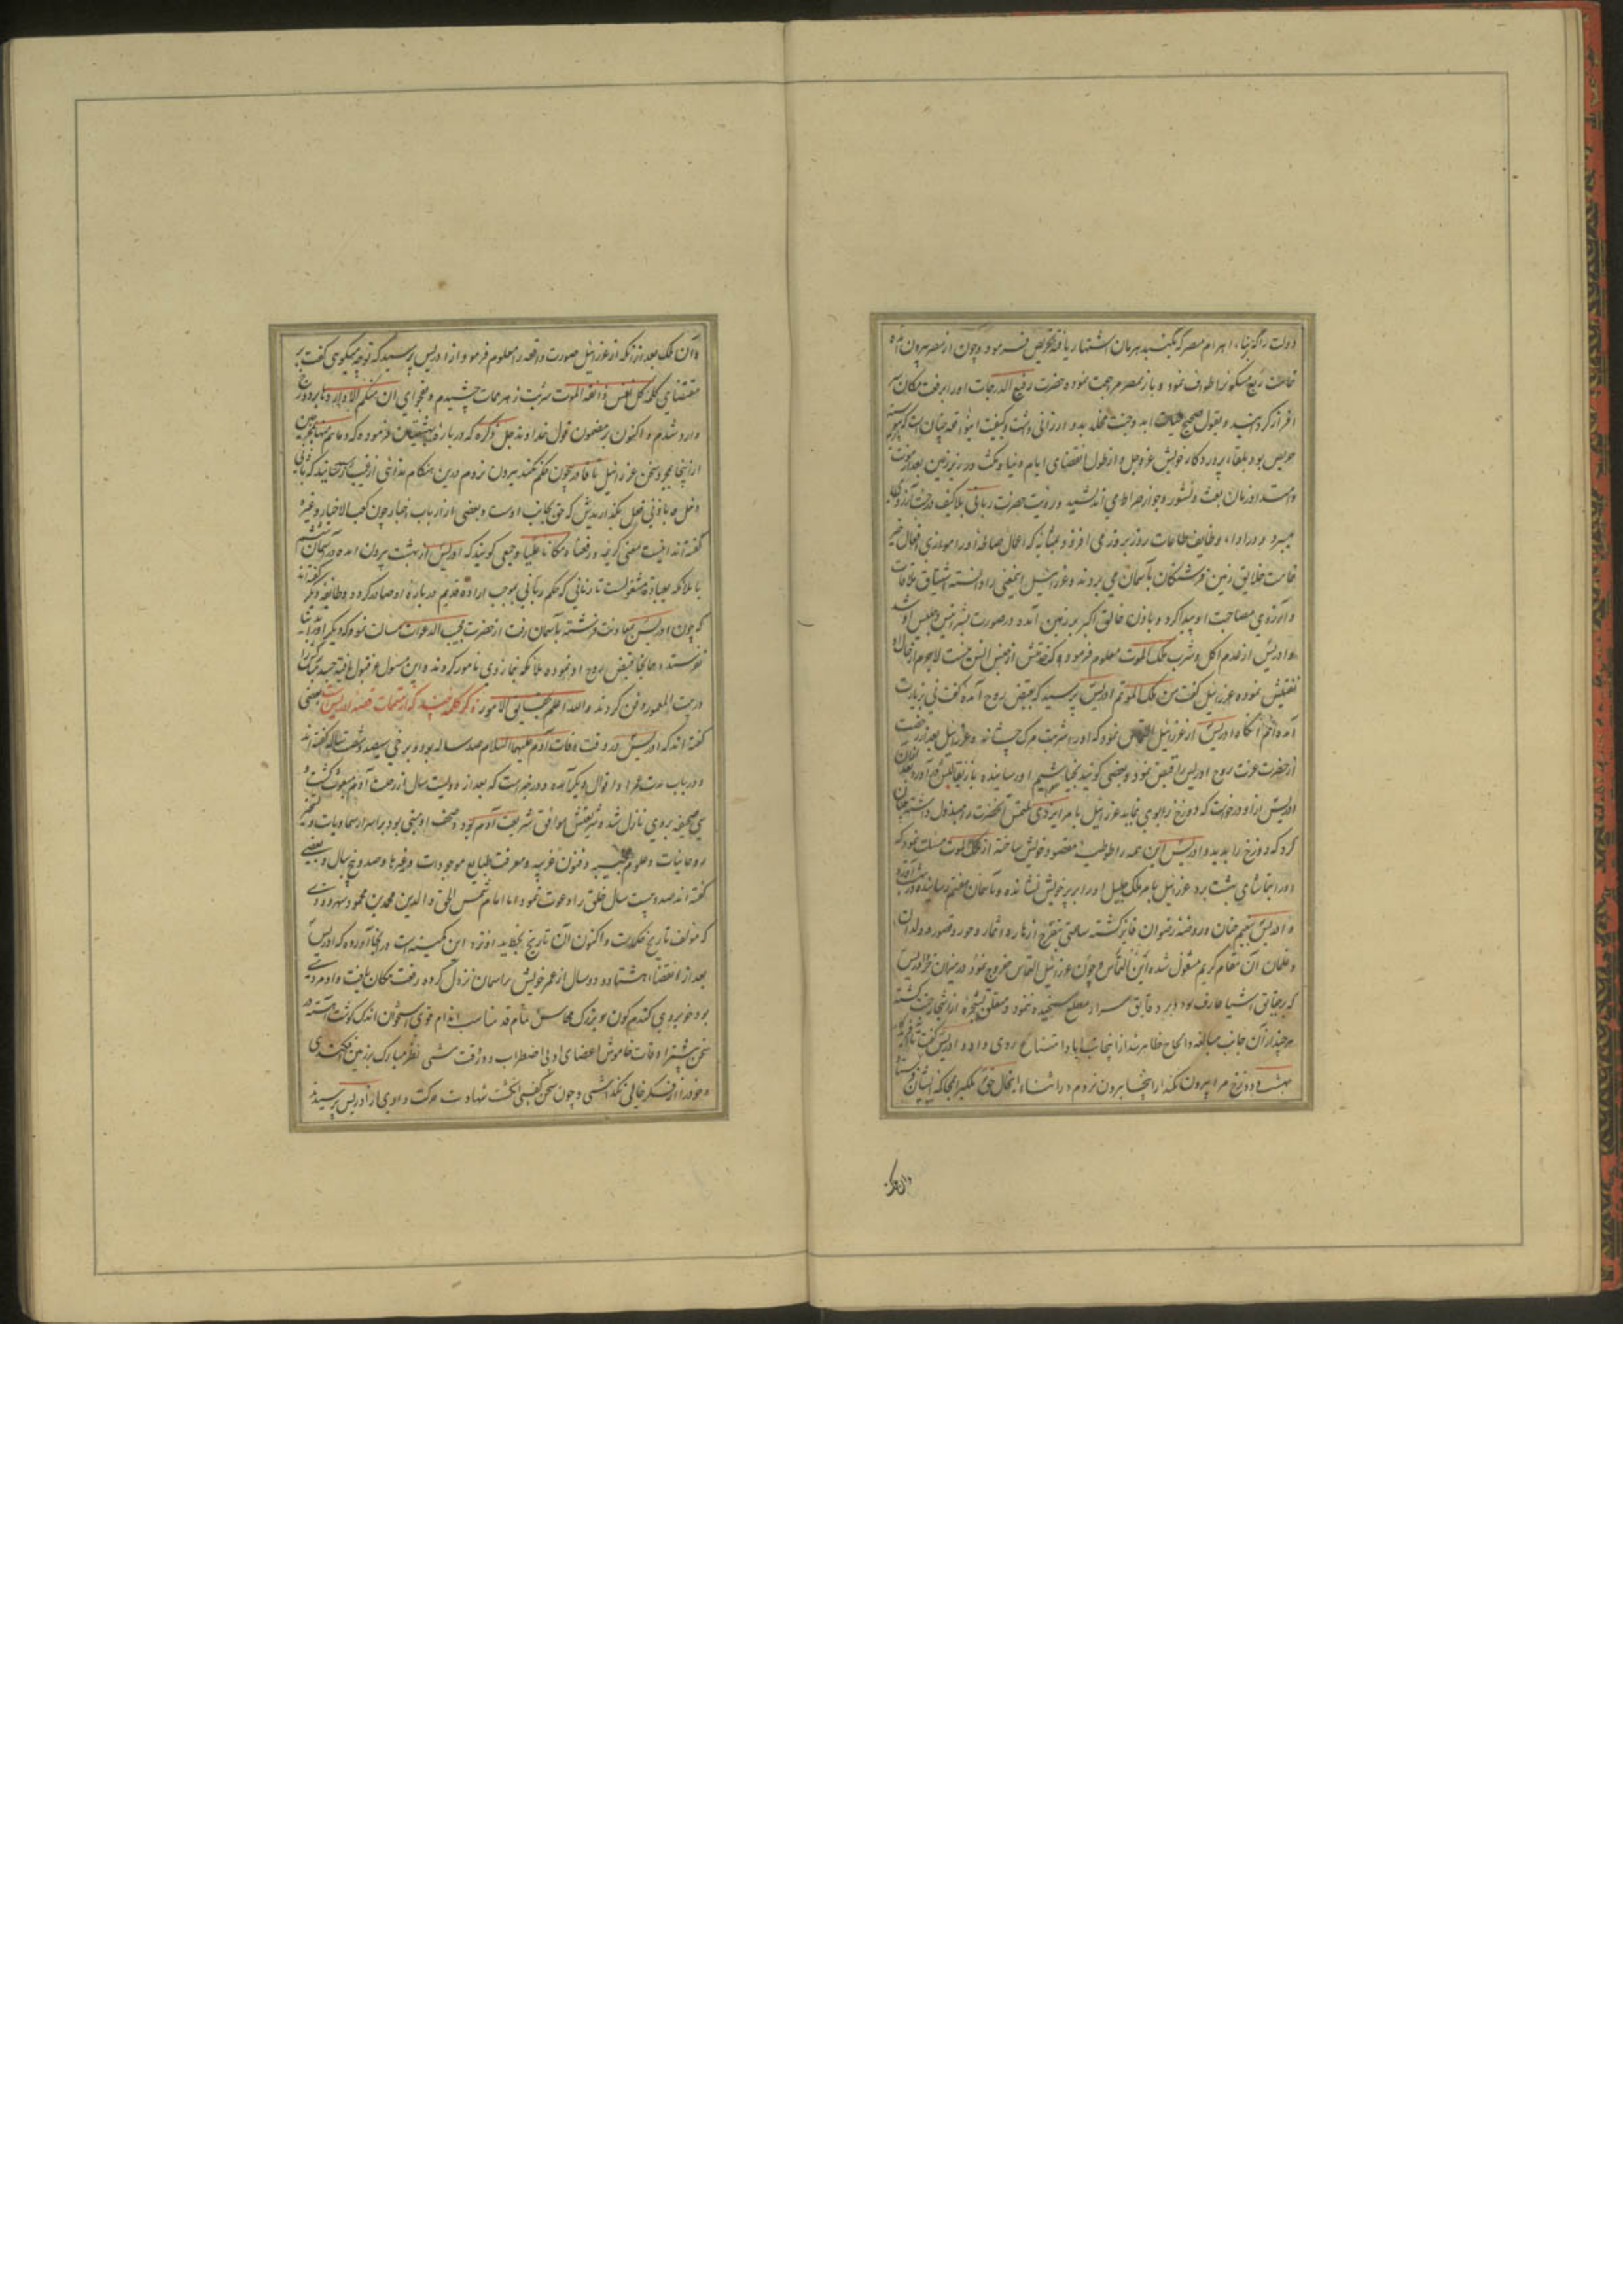 دولت را که بنباء اهرام مصر که بگنبد هرمان اشتهار یافته تحریص فرمود و چون از مصر بیرون آمده
تمامت ربع مسکون را طواف نمود و باز بمصر مراجعت نموده حضرت رفیع الدرجات او را برفعت مکان سر
افراز کردانید و بقول صحیح حیات ابد و جنت مخلد بدو ارزانی داشت و کیفیت این قصه چنان است که
حریص بود بلقاء پروردکار خویش عز و جل و از طول انقضای ایام دنیا و مکث در زیر زمین بعد از موت
و امتداد زمان بعث و نشور و جواز صراط می اندیشید و رویت حضرت ربانی بلا کیف و جنت آرزو
میبرد و در اداء وظایف طاعات روز بروز می افزود بمثابه که اعمال صالحه او را موازی افعال خیر
تمامت خلایق زمین فرشتکان بآسمان می بردند و عزرائیل اینمعنی را دانسته اشتیاق ملاقات
و آرزوی مصاحبت او پیدا کرد و باذن خالق اکبر بر زمین آمده در صورت بشر انیس و جلیس او شد
و ادریس از عدم اکل و شرب ملک الموت معلوم فرمود که خلقتش از جنس انس نیست لاجرم از حال او
تفتیش نموده عزرائیل کفت من ملک الموتم ادریس پرسید که بقبض روح آمده کفت نی بزیارت
آمده‌ام انکاه ادریس از عزرائیل التماس نمود که او را شربت مرک چشاند و عزرائیل بعد از رخصت
از حضرت عزت روح ادریس را قبض نمود و بعضی کویند بچهارم سپهر او رسانیده باز بقالبش در آورد بعد از آن
ادریس از او درخواست که دوزخ را بوی نماید عزرائیل بامر ایزدی ملتمس آنحضرت را مبذول داشته چنان
کرد که دوزخ را بدید و ادریس این همه را توطیه مقصود خویش ساخته از ملک الموت مسئلت نمود که
او را بتماشای بهشت برد عزرائیل بامر ملک جلیل او را بر پر خویش نشانده و بآسمان هفتم رسانیده در بهشت آورد
و ادریس بنعیم جنان و روضه رضوان فایز کشته ساعتی بتفرج ازهار و اثمار و حور و قصور و ولدان
و غلمان آن مقام کریم مشغول شد این التماس و چون عزرائیل التماس خروج نمود در میزان خرد ادریس
که بر حقایق اشیا عارف بود و بر دقایق اسرار مطلع سنجیده نمود و متعلق بشجره از اشجار جنت کشته
هر چند از آن جانب مبالغه و الحاح ظاهر شد از اینجانب ابا و امتناع روی داد و ادریس کفت تا آفریدکار
بهشت و دوزخ مرا بیرون نکند از اینجا بیرون نروم در اثناء اینحال حق تعالی ملکی را بمحاکمه ایشان فرستاد
و آن ملک
و آن ملک بعد از آنکه از عزرائیل صورت واقعه را معلوم فرمود از ادریس پرسید که تو چه میکوی کفت بر
مقتضای کلمه کل نفس ذائقة الموت شربت زهر ممات چشیدم و بفحوای ان منکم الا واردها بر دوزخ
وارد شدم و اکنون بر مضمون قول خداوند جل ذکره که در باره بهشتیان فرموده که و ما هم منها بمخرجین
از اینجا بمجرد سخن عزرائیل تا قادر بیچون حکم نکند بیرون نروم درین هنکام ندائی از غیب رسانیدند که باذنی
دخل و باذنی فعل بکذاریدش که حق بجانب اوست و بعضی از ارباب اخبار چون کعب الاحبار و غیره
کفته‌اند اینست معنی کریمه و رفعناه مکانا علیا و جمعی کویند که ادریس از بهشت بیرون آمده در آسمان ششم
با ملائکه بعبادت مشغولست تا زمانی که حکم ربانی بموجب اراده قدیم در باره او صادر کردد و طایفه دیکر کفته‌اند
که چون ادریس بمعاونت فرشته بآسمان رفت از حضرت مجیب الدعوات مسئلت نمود که دیکر او را بدنیا
نفرستد و همانجا قبض روح او نموده ملائکه بنماز وی مامور کردند و این مسئول عز قبول یافته جسد مبارکش را
در بیت المعمور دفن کردند والله اعلم بحقایق الامور ذکر کلمه چند که از متممات قصه ادریس است بعضی
کفته‌اند که ادریس در وقت وفات آدم علیهما السلام صد ساله بود و برخی سیصد و شصت ساله کفته‌اند
و در باب مدت عمر او اقوال دیکر آمده و در خبر است که بعد از دویست سال از رحلت آدم مبعوث کشت و
سی صحیفه بروی نازل شد و شریعتش موافق شریعت آدم بود و صحف او مبنی بود بر اسرار سماویات و تسخیر
روحانیات و علوم عجیبه و فنون غریبه و معرفت طبایع موجودات و غیرها و صد و پنج سال و بعضی
کفته‌اند صد و بیست سال خلق را دعوت نمود اما امام شمس الحق و الدین محمد بن محمود سهروردی
که مولف تاریخ حکماست و اکنون آن تاریخ بخط ید او نزد این کمینه است در آنجا آورده که ادریس
بعد از انقضاء هشتاد و دو سال از عمر خویش بر آسمان نزول کرده رفعت مکان یافت و او مردی
بود خوبروی کندم کون و بزرک محاسن تمام قد مناسب اندام قوی استخوان اندک کوشت آهسته در
سخن بیشتر اوقات خاموش اعضای او بی اضطراب و در وقت مشی نظر مبارک بر زمین افکندی
و خود را از فکر خالی نکذاشتی و چون سخن کفتی انکشت شهادت حرکت دادی از ادریس پرسیدند